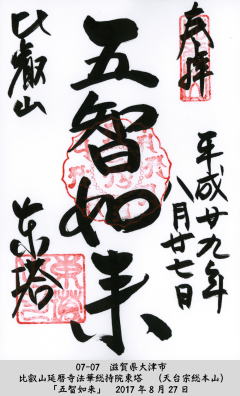 奉拝
平成廿九年
八月廿七日
五智如来
比叡山
東塔
07-07　滋賀県大津市
比叡山延暦寺法華総持院東塔　（天台宗総本山）
「五智如来」　2017年8月27日